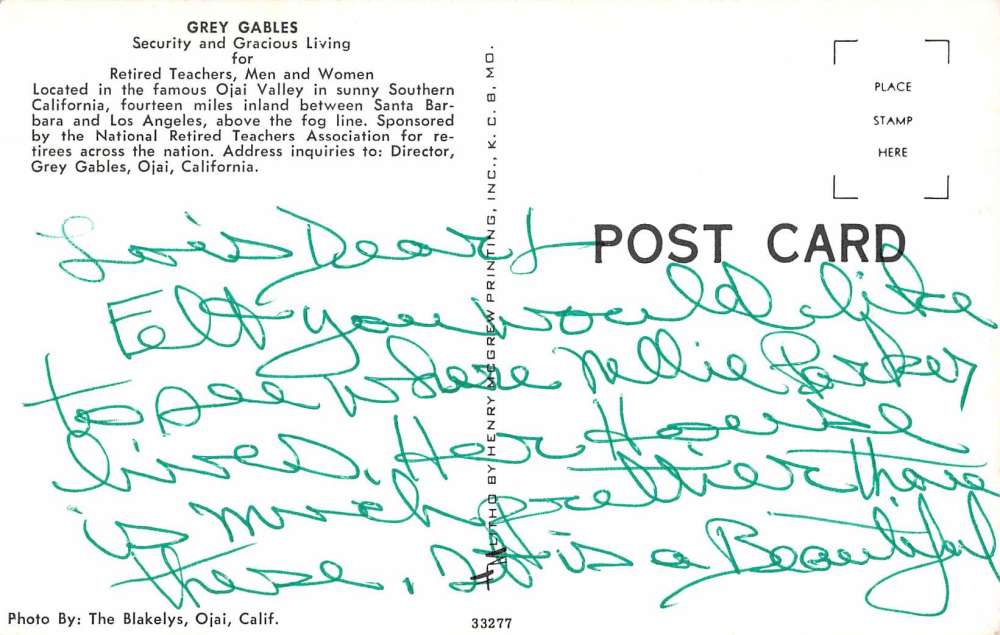 GREY GABLES
Security and Gracious Living
for
Retired Teachers, Men and Women
Located in the famous Ojai Valley in sunny Southern
California, fourteen miles inland between Santa Bar-
bara and Los Angeles, above the fog line. Sponsored
by the National Retired Teachers Association for re-
tirees across the nation. Address inquiries to: Director,
Grey Gables, Ojai, California.
PLACE
STAMP
HERE
POST CARD
LITHO BY HENRY MCGREW PRINTING, INC., K. C. 8, MO.
Lois Dear,
Felt you would like
to see where Nellie Parker
lives. Her House
is much prettier than
these. It is a Beautiful
Photo By: The Blakelys, Ojai, Calif.
33277